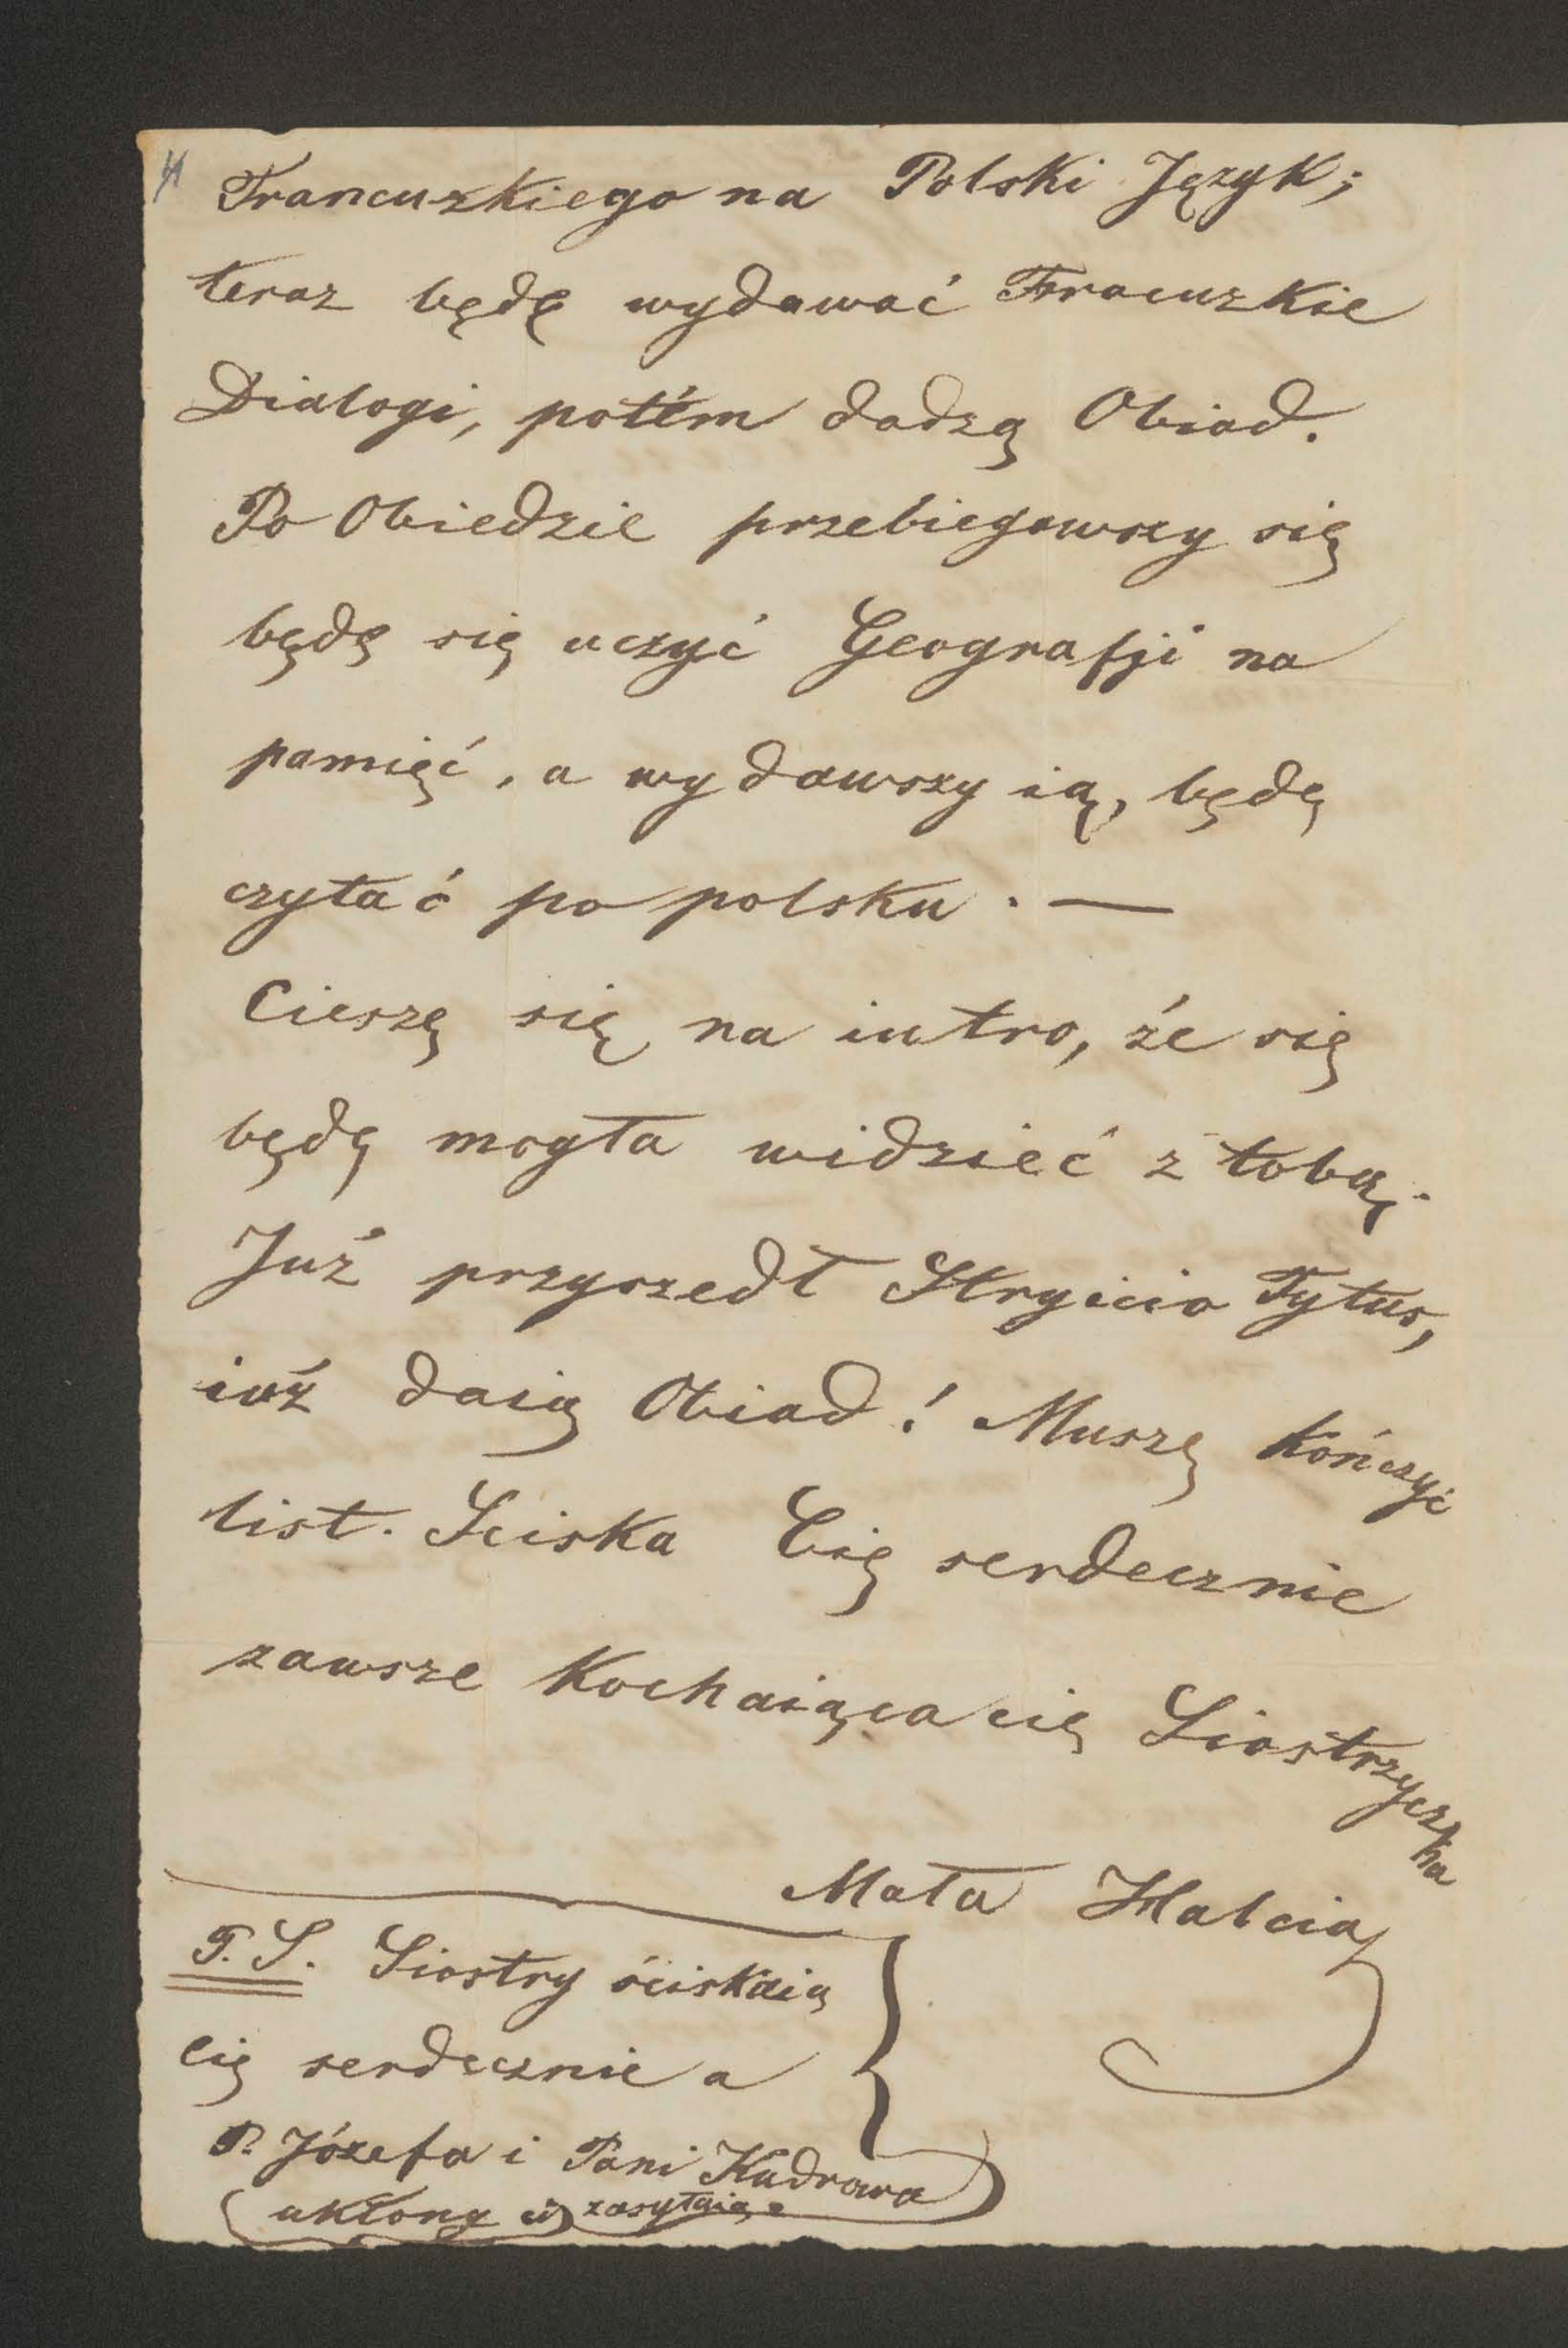 4
Francuzkiego na Polski Język;
teraz będę wydawać Fracuzkie
Dialogi, potém dadzą Obiad.
Po Obiedzie przebiegawszy się
będę się uczyć Geografji na
pamięć, a wydawszy ią, będę
czytać po polsku. —
Cieszę się na iutro, że się
będę mogła widzieć z tobą.
Już przyszedł Stryicio Tytus,
iuż daią Obiad! Muszę kończyć
list. Sciska Cię serdecznie
zawsze Kochaiąca cię Siostrzyczka
Mała Halcia
P.S. Siostry ściskaią
cię serdecznie a
P. Józefa i Pani Kudrowa
ukłony ci zasyłaią.